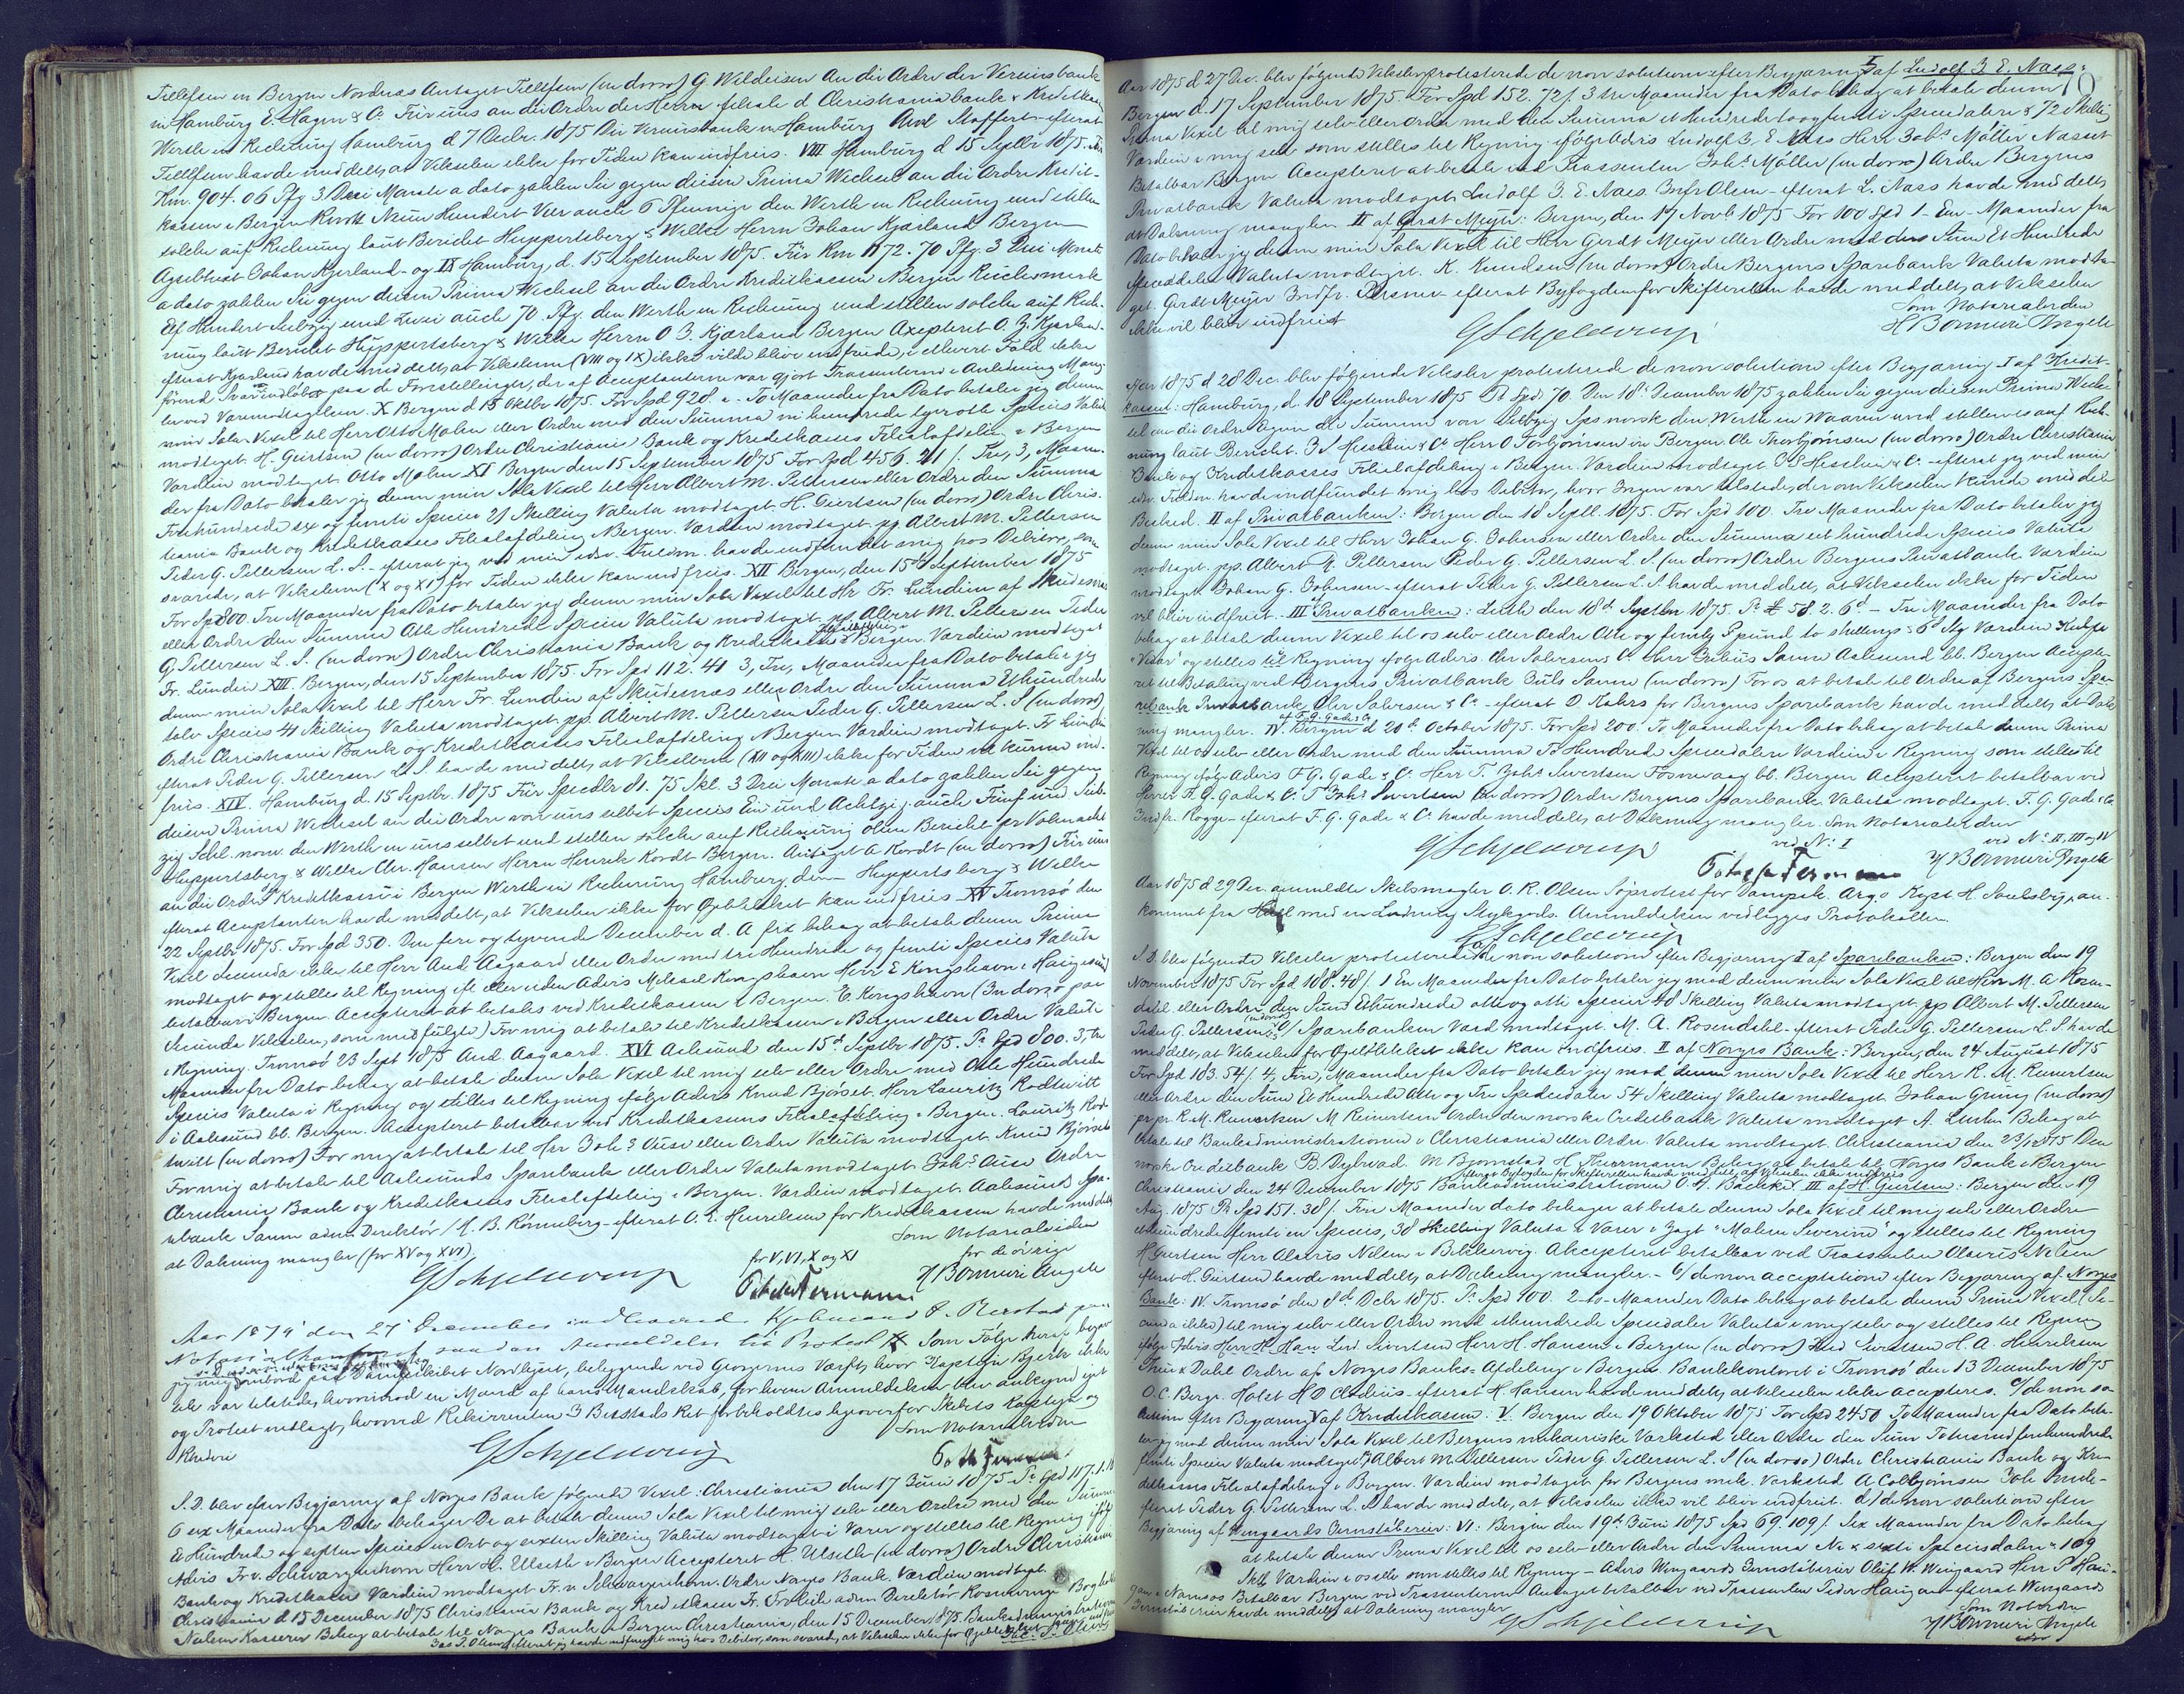 Tellefsen in Bergen Nordnæs Antaget Tellefsen (in dorso) G Wildeisen An die Ordre der Vereinsbank
in Hamburg E. Hagen & Co Für uns an die Ordre der Herrn Filiale d Christiania bank & Kreditkasse
Werth in Rechnung Hamburg d 7 Decbr. 1875 Die Vereinsbank in Hamburg efterat
Tellefsen havde meddelt, at Vekselen ikke for Tiden kan indfries. VIII Hamburg d 15 Septbr 1875. Für
Rm. 904. 06 Pfg 3 Drei Monate a dato zahlen Sie gegen diesen Prima Wechsel an die Ordre Kredit-
kassen i Bergen Rmrk Neun Hundert Vier auch 6 Pfennige den Werth in Rechnung und stellen
solche auf Rechnung laut Bericht Huppertsberg & Wilke Herrn Johan Kjærland Bergen
Johan Kjærland - og IX Hamburg, d. 15 September 1875. Für Rm 1172. 70 Pfg. 3 Drei Monate
a dato zahlen Sie gegen diesen Prima Wechsel an die Ordre Kreditkassen i Bergen Reichsmark
Elf Hundert Siebzig und Zwei auch 70 Pfg. den Werth in Rechnung und stellen solche auf Rech-
nung laut Bericht Huppertsberg & Wilke Herrn O J. Kjærland Bergen Axepteret O. J. Kjærland.
efterat Kjærland havde meddelt, at Vekslerne (VIII og IX) ikke vilde blive indfriede, i ethvert Fald ikke
førend Svar indløber paa de Forestillinger, der af Acceptanterne var gjort Trasenterne i Anledning Mang-
ler ved Varemodtagelsen. X Bergen d 15 Oktbr 1875. For Spd 928. - To Maaneder fra Dato betaler jeg denne
min Sola-Vexel til Herr Otto Malm eller Ordre med den Summa ni hundrede tyveotte Species Valuta
modtaget. H. Geirtsen (in dorso) Ordre Christiania Bank og Kreditkasses Filialafdeling i Bergen
Værdien modtaget Otto Malm XI Bergen den 15 September 1875 For Spd 456. 21 /. Tre, 3, Maane-
der fra Dato betaler jeg denne min Sola Vexel til Herr Albert M. Pettersen eller Ordre den Summa
Firehundrede sex og femti Species 21 Skilling Valuta modtaget H. Giertsen (in dorso) Ordre Chris-
tiania Bank og Kreditkasses Filialafdeling i Bergen. Værdien modtaget. pp. Albert M. Pettersen
Peder G. Pettersen L. S. - efterat jeg ved min edsv. Fuldm. havde indfundet mig hos Debitor, som
svarede, at Vekslerne (X og XI) for Tiden ikke kan indfries. XII Bergen, den 15de September 1875
For Spd 800. Tre Maaneder fra Dato betaler jeg denne min Sola Vexel til Hr Fr. Lundin af Skudesnæs
eller Ordre den Summa Otte Hundrede Specier Valuta modtaget pp. Albert M. Pettersen Peder
G. Pettersen L. S. (in dorso) Ordre Christiania Bank og Kreditkasses Filialafdeling i Bergen. Værdien modtaget
Fr. Lundin XIII. Bergen, den 15 September 1875. For Spd 112. 41 3, Tre, Maaneder fra Dato betaler jeg
denne min Sola Vexel til Herr Fr. Lundin af Skudesnæs eller Ordre den Summa Ethundrede
tolv Species 41 Skilling Valuta modtaget. pp. Albert M. Pettersen Peder G. Pettersen L. S (in dorso)
Ordre Christiania Bank og Kreditkasses Filialafdeling i Bergen Værdien modtaget. Fr Lundin
efterat Peder G. Pettersen L. S. havde meddelt, at Vekslerne (XII og XIII) ikke for Tiden vil kunne ind-
fries. XIV. Hamburg d. 15 Septbr. 1875 Für Speciedlr 81. 75 Skl. 3 Drei Monate a dato zahlen Sie gegen
diesen Prima Wechsel an die Ordre von uns selbst Species Ein und Achtzig auch Fünf und Sieb-
zig Schl. norw. den Werth in uns selbst und stellen solche auf Rechnung ohne Bericht pr Volmacht
Huppertsberg & Wilke Chr. Hansen Herrn Henrik Kordt Bergen. Antaget A Kordt (in dorso) Für uns
an die Ordre Kreditkassen i Bergen Werth in Rechnung Hamburg den Huppertsberg & Wilke
efterat Acceptanten havde meddelt, at Vekselen ikke for Øieblikket kan indfries XV Tromsø den
22 Septbr 1875. For Spd 350. Den fire og tyvende December d. A fix behag at betale denne Prima
Vexel secunda ikke til Herr And: Aagaard eller Ordre med tre Hundrede og femti Species Valuta
modtaget og stilles til Regning eft eller uden Advis Mikael Kongshavn Herr E Kongshavn i Haugesund
betalbar i Bergen. Accepteret at betales ved Kreditkassen i Bergen. E. Kongshavn (In dorso paa
Secunda Vekselen, som medfulgte) For mig at betale til Kreditkassen i Bergen eller Ordre Valuta
i Regning. Tromsø 23 Sept 1875 And. Aagaard. XVI Aalesund den 15de Septbr 1875. Pr Spd 800. 3, tre
Maaneder fra Dato behag at betale denne Sola Vexel til mig selv eller Ordre med Otte Hundrede
Species Valuta i Regning og stilles til Regning ifølge Advis Knud Bjørset. Herr Lauritz Rødtwitt
i Aalesund bt. Bergen. Accepteret betalbar ved Kreditkassens Filialafdeling i Bergen. Lauritz Rød-
twitt (in dorso) For mig at betale til Hr Joh: Ause eller Ordre Valuta modtaget. Knud Bjørset
For mig at betale til Aalesunds Sparebank eller Ordre Valuta modtaget. Johs Ause Ordre
Christiania Bank og Kreditkasses Filialafdeling i Bergen. Værdien modtaget. Aalesunds Spa-
rebank Sann adm. Direktør / N. B. Rønneberg - efterat O. E. Henriksen for Kreditkassen havde meddelt,
at Dækning mangler (for XV og XVI).
Som Notarialvidne
for V, VI, X og XI
for de øvrige
G Schjelderup
H Bonnevie Angell
Aar 1875 den 27 December indleverede Kjøbmand
Notarialkontoret saadan Anmeldelse til Protest Som Følge heraf begav
jeg mig ombord paa Dampskibet Nordlyset, beliggende ved Georgernes Værft, hvor Kaptein Bjerk ikke
selv var tilstede, hvorimod en Mand af hans Mandskab, for hvem Anmeldelsen blev ankyndiget
og Protest nedlagt, hvorved Rekvirenten J Berstads Ret forbeholdtes ligeoverfor Skibets Kaptein og
Rhederi
Som Notarialvidne
G Schjelderup
S. D. blev efter Begjæring af Norges Bank følgende Vexel: Christiania den 17 Juni 1875 Pr Spd 117. 1. 16
6 sex Maaneder fra Dato behager De at betale denne Sola Vexel til mig selv eller Ordre med den Summa
Et Hundrede og sytten Specier en Ort og sexten Skilling Valuta modtaget i Varer og stilles til Regning ifølge
Advis Fr v. Schwarzenhorn Herr H. Ulseth i Bergen Accepteret H. Ulseth (in dorso) Ordre Christiania
Bank og Kreditkasse Værdien modtaget Fr. v Schwarzenhorn. Ordre Norges Bank. Værdien modtaget
Christiania d 15 December 1875 Christiania Bank og Kreditkasse Fr. Frølich adm Direktør
Nielsen Kasserer Behag at betale til Norges Bank i Bergen Christiania, den 15 December 1875. Bankadministrationen
efterat jeg havde indfundet mig hos Debitor, som svarede, at Vekselen ikke for Øieblikket kunde indfries
Aar 1875 d 27 Dec. blev følgende Veksler protesterede de non solutione efter Begjæring I af Ludolf J. E. Naes:
Bergen d. 17 September 1875. For Spd 152. 72 /. 3 tre Maaneder fra Dato behag at betale denne
Prima Vexel til mig selv eller Ordre med den Summa et Hundrede to og femti Speciedaler & 72 Skilling
Værdien i mig selv som stilles til Regning ifølge Advis Ludolf J. E Naes Herr Johs Møller Næset
Betalbar Bergen Accepteret at betale ved Trassenten Johs Møller (in dorso) Ordre Bergens
Privatbank Valuta modtaget Ludolf J. E. Naes. Indfr Olsen - efterat L. Næss havde meddelt,
at Dækning mangler II af Gerdt Meyer: Bergen, den 17 Novb 1875 For 100 Spd 1 - En - Maaneder fra
Dato betaler jeg denne min Sola Vexel til Herr Gerdt Meyer eller Ordre med den Sum Et Hundrede
Speciedaler Valuta modtaget. K. Knudsen (in dorso) Ordre Bergens Sparebank Valuta modta-
get. Gerdt Meyer Indfr. - efterat Byfogden for Skifteretten havde meddelt, at Vekselen
ikke vil blive indfriet
Som Notarialvidne
G Schjelderup
H Bonnevie Angell
Aar 1875 d 28 Dec. blev følgende Veksler protesterede de non solutione efter Begjæring I af Kredit-
kassen: Hamburg, d. 18 September 1875 Pr Spd 70. Den 18 December 1875 zahlen Sie gegen diesen Prima Wech-
sel an die Ordre Eigen die Summe von Siebzig Sps norsk den Werth in Waaren und stellen es auf Rech-
nung laut Bericht. J S Hesslein & Co Herr O Torbjørnsen in Bergen. Ole Thorbjørnsen (in dorso) Ordre Christiania
Bank og Kreditkasses Filialafdeling i Bergen. Værdien modtaget J S Hesslein & Co - efterat jeg ved min
edsv. Fuldm. havde indfundet mig hos Debitor, hvor Ingen var tilstede, der om Vekselen kunde meddele
Besked. II af Privatbanken: Bergen den 18 Septb. 1875. For Spd 100. Tre Maaneder fra Dato betaler jeg
denne min Sola Vexel til Herr Johan G. Johnsen eller Ordre den Summa eet hundrede Species Valuta
modtaget. pp. Albert M. Pettersen Peder G. Pettersen L. S. (in dorso) Ordre Bergens Privatbank Værdien
modtaget. Johan G. Johnsen - efterat Peder G. Pettersen L. S. havde meddelt, at Vekselen ikke for Tiden
vil blive indfriet. III Privatbanken: Leith den 18d Septbr 1875. Pr £ 58. 2. 6d - Tre Maaneder fra Dato
behag at betale denne Vexel til os selv eller Ordre Otte og femti Pund to shillings & 6d Stg Værdien Kulpr
"Vidar" og stilles til Regning ifølge Advis. Chr Salvesen & Co Herr Julius Sanne Aalesund bt. Bergen Accepte-
ret til Betaling ved Bergens Privatbank Juls Sanne (in dorso) For os at betale til Ordre af Bergens Spa-
rebank Privatbank Chr Salvesen & Co - efterat O Kahrs for Bergens Sparebank havde meddelt, at Dæk-
ning mangler. IV. af F. G. Gade & Co Bergen d 20de October 1875. For Spd 200. To Maaneder fra Dato behag at betale denne Prima
Vexel til os selv eller Ordre med den Summa To Hundrede Speciedaler Værdien i Regning som stilles til
Regning ifølge Advis F. G. Gade & Co Herr T. Johs Sivertsen Fosnevaag bt. Bergen Accepteret betalbar ved
Herrer F. G. Gade & Co T Johs Sivertsen (in dorso) Ordre Bergens Sparebank Valuta modtaget. F. G. Gade & Co
Indfr. Rogge - efterat F. G. Gade & Co havde meddelt, at Dækning mangler. Som Notarialvidne
ved No I
ved No II, III og IV
G Schjelderup
H Bonnevie Angell
Aar 1875 d 29 Dec. anmeldte Skibsmægler O. R. Olsen Søprotest for Dampsk. Argo Kapt H. an-
kommet fra Hull med en Ladning Stykgods. Anmeldelsen vedlægges Protokollen.
G Schjelderup
S. D. blev følgende Veksler protesterede a/ de non solutione efter Begjæring I af Sparebanken: Bergen den 19
November 1875 For Spd 188. 48 /. 1 En Maaneder fra Dato betaler jeg mod denne min Sola Vexel til Herr M. A. Rosen-
dahl eller Ordre den Sum Ethundrede otte og otti Specier 48 Skilling Valuta modtaget. pp Albert M. Pettersen
Peder G. Pettersen (in dorso) Sparebanken Værd modtaget. M. A. Rosendahl - efterat Peder G. Pettersen L. S havde
meddelt, at Vekselen for Øieblikket ikke kan indfries. II af Norges Bank: Bergen, den 24 August 1875
For Spd 183. 54 /. 4, Fire, Maaneder fra Dato betaler jeg mod denne min Sola Vexel til Herr R. M. Reinertsen
eller Ordre den Sum Et Hundrede Otti og Tre Speciedaler 54 Skilling Valuta modtaget. Johan Grung (in dorso)
pr. pr. R. M. Reinertsen M Reinertsen Ordre den norske Creditbank Valuta modtaget A. Behag at
betale til Bankadministrationen i Christiania eller Ordre. Valuta modtaget. Christiania den 23/12 1875 Den
norske Creditbank B. Dybwad. M Bjørnstad H Thurmann Behag at betale til Norges Bank i Bergen
Christiania den 24 December 1875 Bankadministrationen O. A. Bachke efterat Byfogden for Skifteretten havde meddelt, at Vekselen ikke indfries III af H. Giertsen: Bergen den 19
Aug. 1875 Pr Spd 151. 38 /. Fire Maaneder dato behager at betale denne Sola Vexel til mig selv eller Ordre
ethundrede femti en Species, 38 Skilling Valuta i Varer i Jagt "Maren Severine" og stilles til Regning
H Giertsen Herr Olavus Nilsen i Bekkervig. Akcepteret betalbar ved Trassenten Olavus Nilsen
efterat H. Giertsen havde meddelt, at Dækning mangler. - b/ de non acceptatione efter Begjæring af Norges
Bank: IV. Tromsø den 8de Decbr 1875. Pr Spd 100. 2 - to - Maaneder Dato behag at betale denne Prima Vexel (Se-
cunda ikke) til mig selv eller Ordre med ethundrede Speciedaler Valuta i mig selv og stilles til Regning
ifølge Advis Herr H. Hans Lud. Sivertsen Herr H. Hansen i Bergen (in dorso) Lud Sivertsen H. A. Henriksen
& Dahl Ordre af Norges Banks-Afdeling i Bergen. Bankkontoret i Tromsø den 13 December 1875
O. C. Berge. Holst H O Clodius - efterat H. Hansen havde meddelt, at Vekselen ikke accepteres. c/ de non so-
lutione efter Begjæring V af Kreditkassen: V. Bergen den 19 Oktober 1875 For Spd 2450 To Maaneder fra Dato beta-
ler jeg mod denne min Sola Vexel til Bergens mekaniske Værksted eller Ordre den Sum Totusind firehundrede
femti Specier Valuta modtaget pp Albert M. Pettersen Peder G. Pettersen L. S (in dorso) Ordre Christiania Bank og Kre-
ditkasses Filialafdeling i Bergen. Værdien modtaget for Bergens mek. Værksted A Colbjørnsen Joh
efterat Peder G. Pettersen L. S. havde meddelt, at Vekselen ikke vil blive indfriet. d/ de non solutione efter
Begjæring af Wingaards Jernstøberier: VI: Bergen den 19de Juni 1875 Spd 69. 109 /. Sex Maaneder fra Dato behag
at betale denne Prima Vexel til os selv eller Ordre den Summa Ni & sexti Speciesdaler & 109
Skill Værdien i os selv som stilles til Regning - Advis Wingaards Jernstøberier Oluf W. Wingaard Herr P Hau-
gan i Namsos Betalbar Bergen ved Trassenterne Antaget betalbar ved Trassenten Peder Haugan - efterat Wingaards
Jernstøberier havde meddelt, at Dækning mangler
Som Notarvidne
G Schjelderup
H Bonnevie Angell